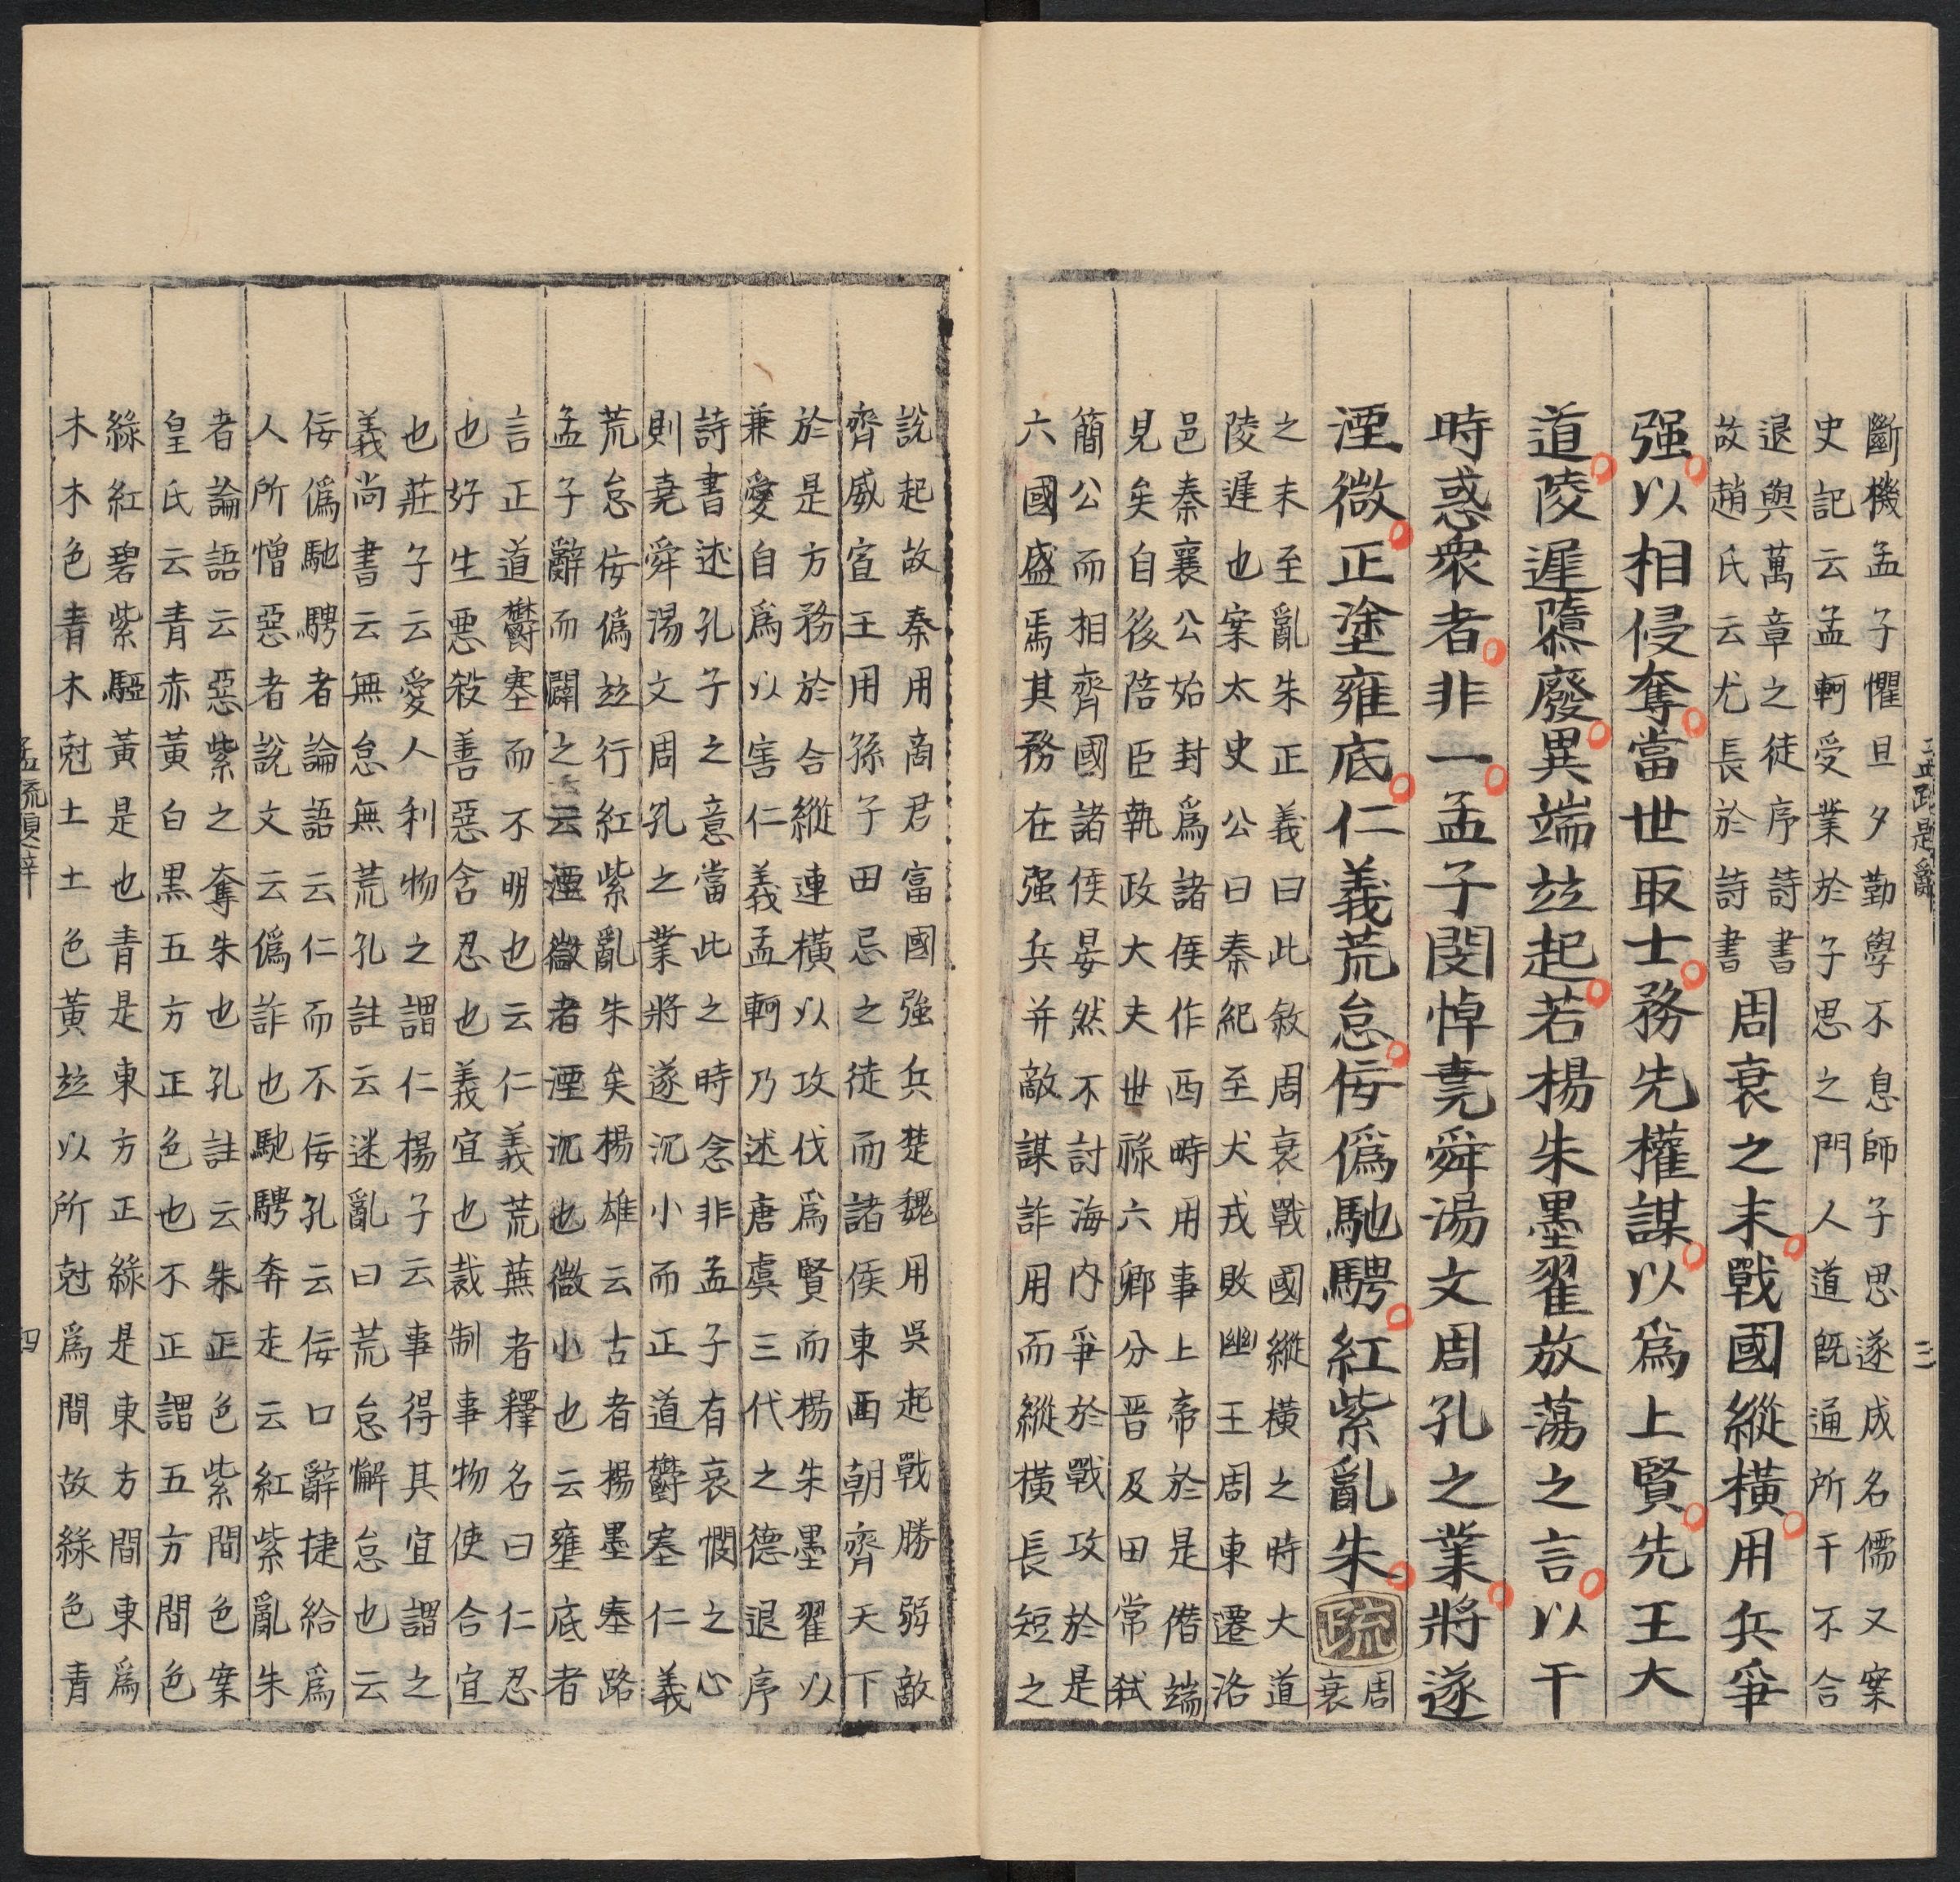 孟疏題辭 三
斷機孟子懼旦夕勤學不息師子思遂成名儒又案
史記云孟軻受業於子思之門人道既通所干不合
退與萬章之徒序詩書
故趙氏云尤長於詩書
周衰之末戰國縱橫用兵爭
强以相侵奪當世取士務先權謀以爲上賢先王大
道陵遲隳廢異端竝起若楊朱墨翟放蕩之言以干
時惑衆者非一孟子閔悼堯舜湯文周孔之業將遂
湮微正塗雍底仁義荒怠佞僞馳騁紅紫亂朱
疏
周
衰
之末至亂朱正義曰此敘周衰戰國縱橫之時大道
陵遲也案太史公曰秦紀至犬戎敗幽王周東遷洛
邑秦襄公始封爲諸侯作西畤用事上帝於是僭端
見矣自後陪臣執政大夫世祿六卿分晉及田常弑
簡公而相齊國諸侯晏然不討海内爭於戰攻於是
六國盛焉其務在强兵并敵謀詐用而縱橫長短之
說起故秦用商君富國強兵楚魏用吳起戰勝弱敵
齊威宣王用孫子田忌之徒而諸侯東西朝齊天下
於是方務於合縱連橫以攻伐爲賢而楊朱墨翟以
兼愛自爲以害仁義孟軻乃述唐虞三代之德退序
詩書述孔子之意當此之時念非孟子有哀憫之心
則堯舜湯文周孔之業將遂沉小而正道鬱塞仁義
荒怠佞僞竝行紅紫亂朱矣楊雄云古者楊墨塞路
孟子辭而闢之云湮微者湮沉也微小也云壅底者
言正道鬱塞而不明也云仁義荒蕪者釋名曰仁忍
也好生惡殺善惡含忍也義宜也裁制事物使合宜
也莊子云愛人利物之謂仁楊子云事得其宜謂之
義尚書云無怠無荒孔註云迷亂曰荒怠懈怠也云
佞僞馳騁者論語云仁而不佞孔云佞口辭捷給爲
人所憎惡者說文云僞詐也馳騁奔走云紅紫亂朱
者論語云惡紫之奪朱也孔註云朱正色紫間色案
皇氏云青赤黃白黒五方正色也不正謂五方間色
綠紅碧紫騮黃是也青是東方正綠是東方間東爲
木木色青木尅土土色黃竝以所尅爲間故綠色青
孟疏題辭 四